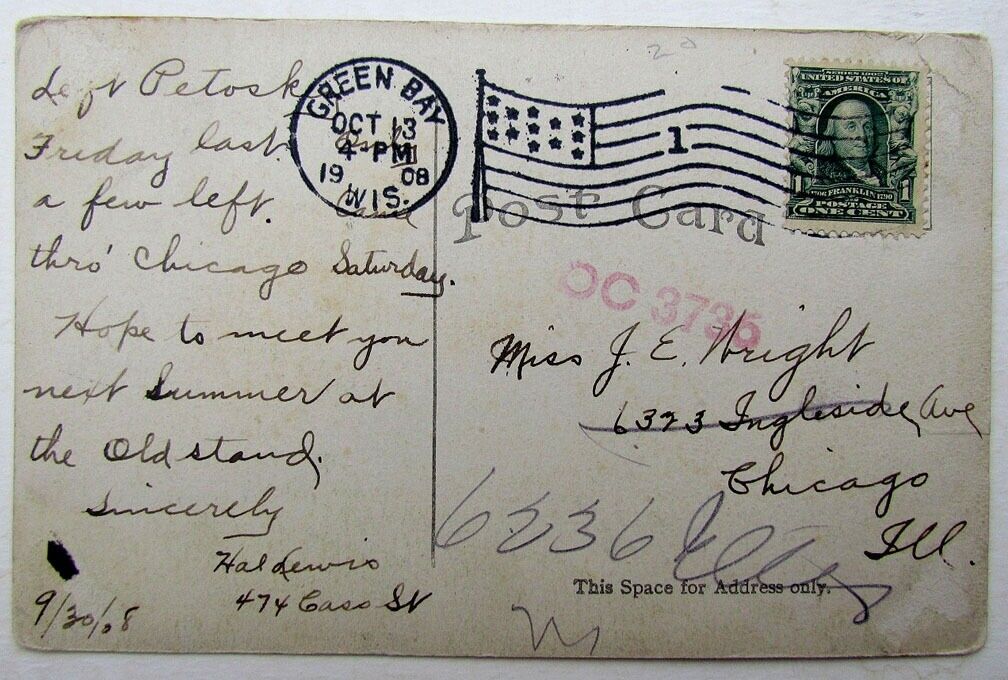 Left Petosk
Friday last. Only
a few left. Came
thro' Chicago Saturday.
Hope to meet you
next Summer at
the Old stand.
Sincerely
Hal Lewis
474 Cass St
9/30/08
GREEN BAY
OCT 13
4 PM
19 08
WIS.
1
SERIES 1902
UNITED STATES OF
AMERICA
1 FRANKLIN 1
POSTAGE
ONE CENT
Post Card
OC 3735
Miss J. E. Wright
6323 Ingleside Ave
Chicago
Ill.
6336 Ellis
This Space for Address only.